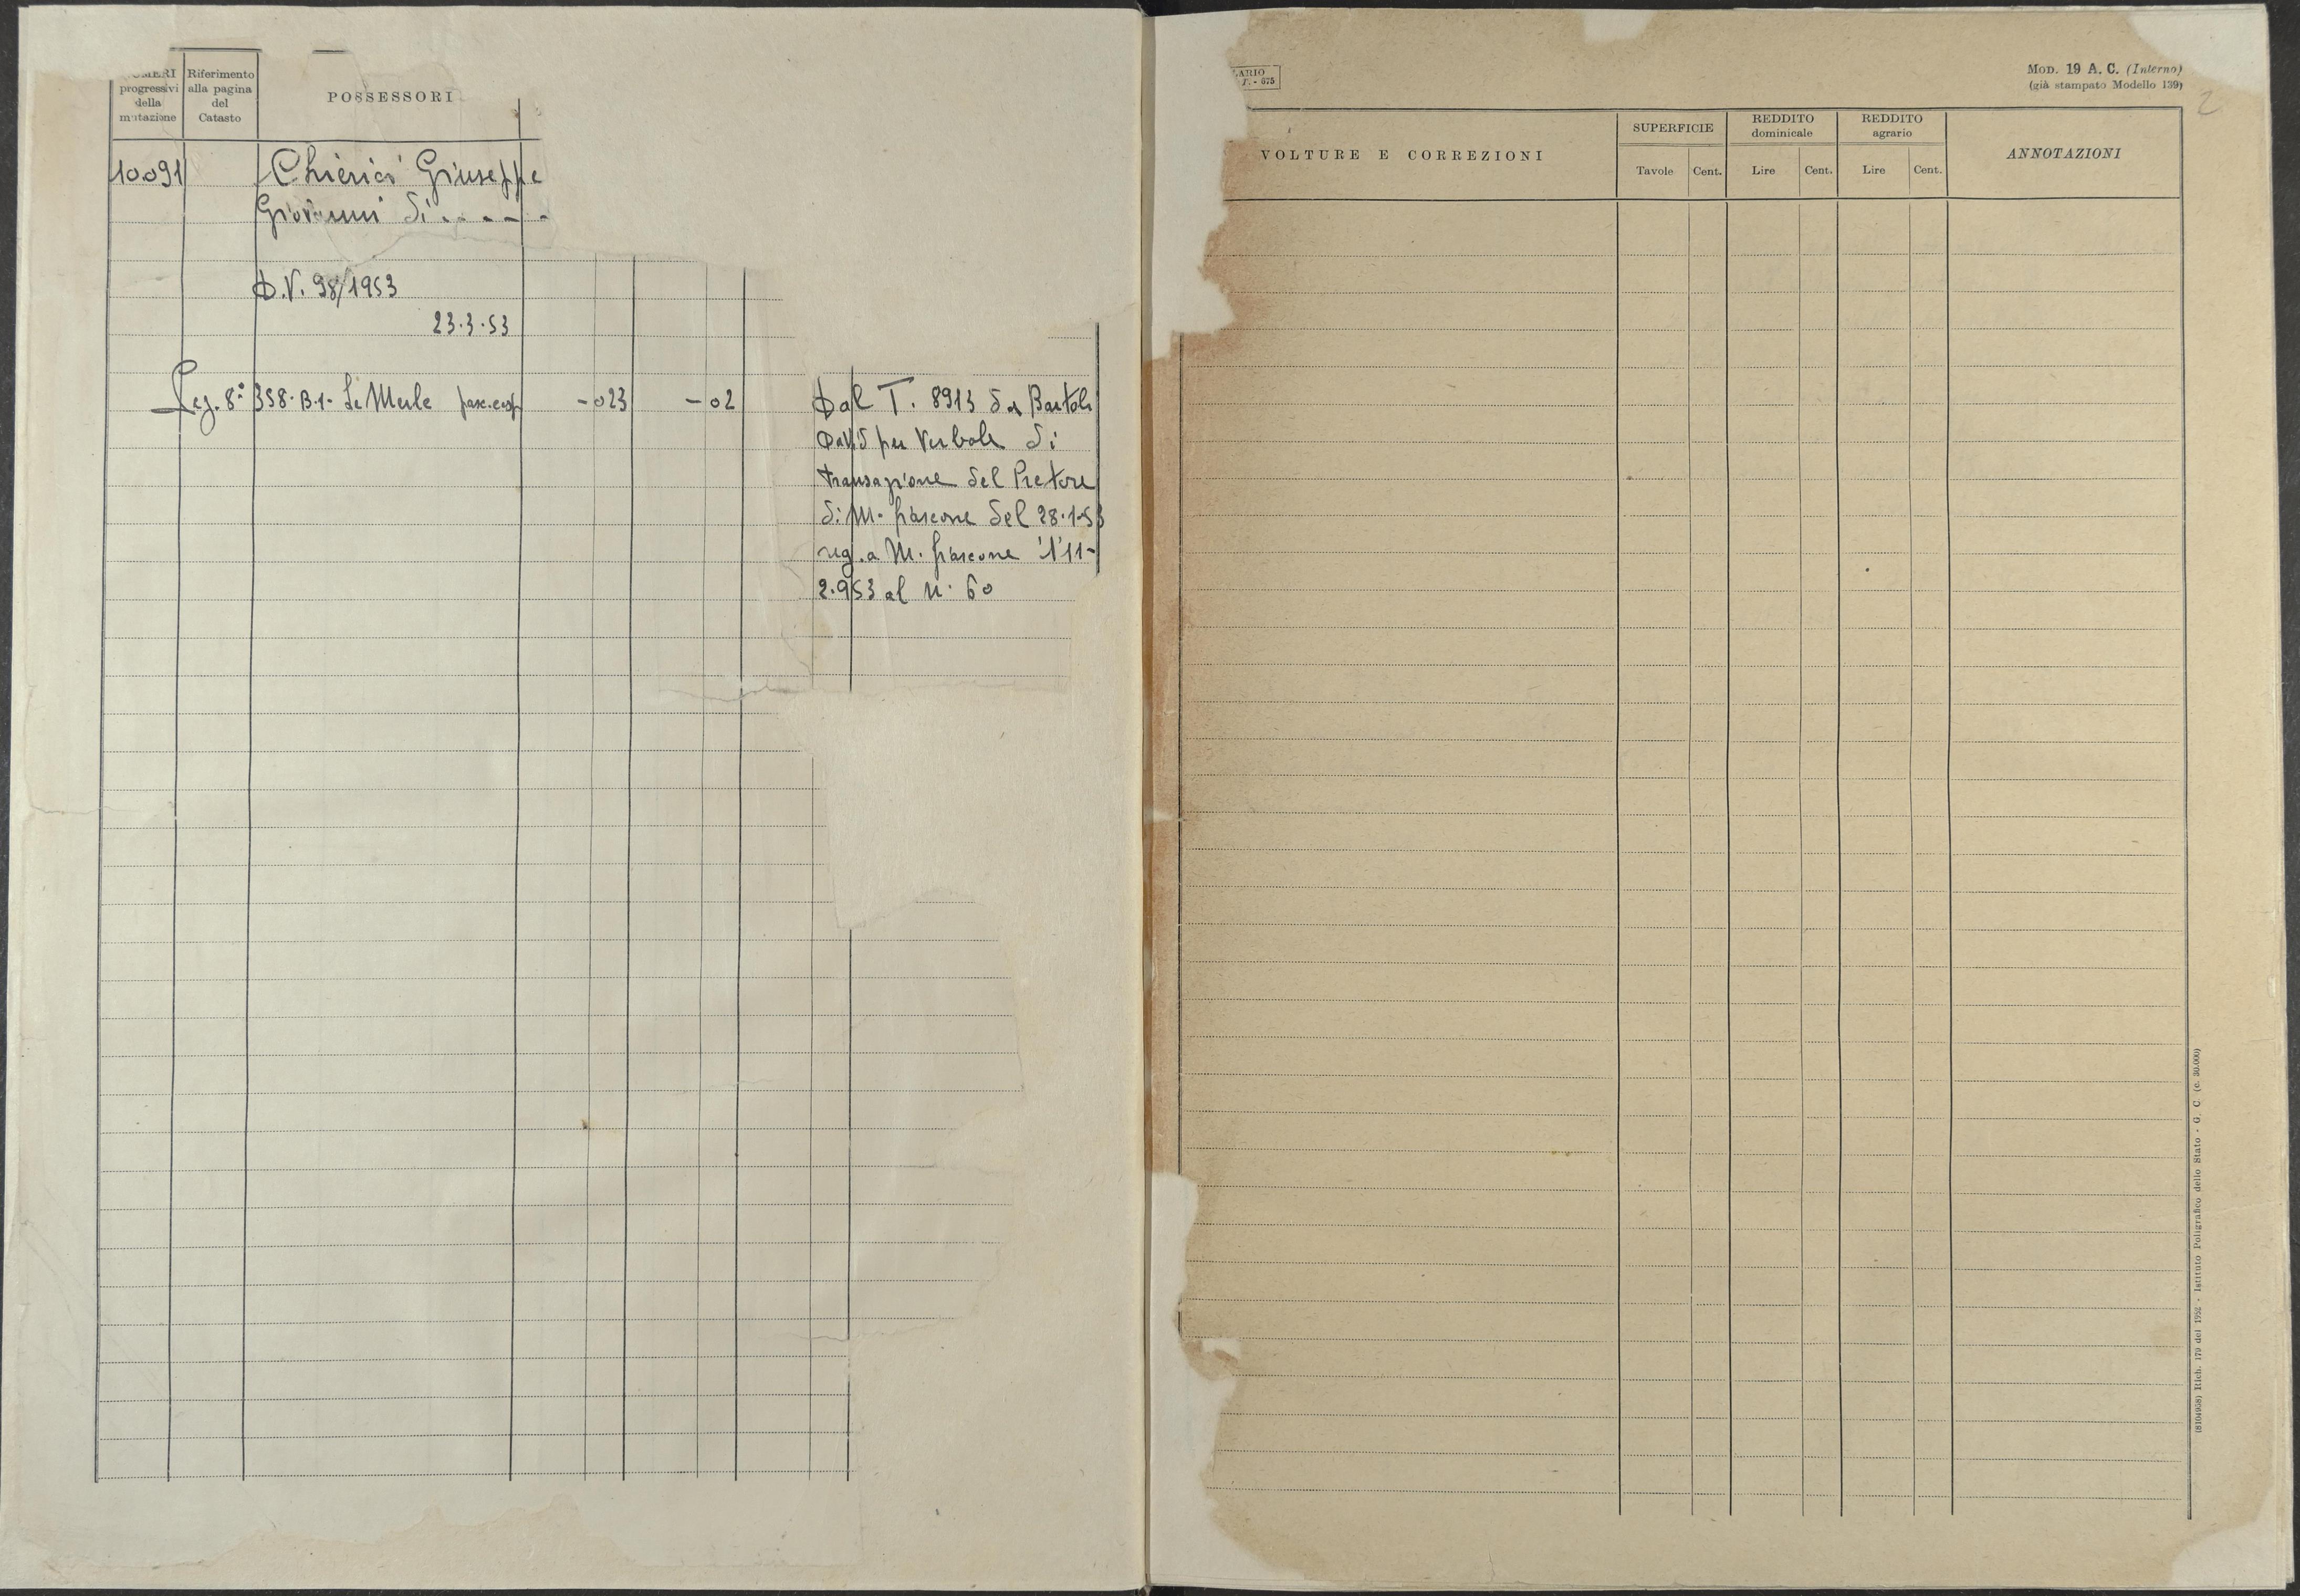 NUMERI
progressivi
della
mutazione
Riferimento
alla pagina
del
Catasto
POSSESSORI
10091
Chierici Giuseppe
Giovanni di
D.V. 98/1953
23.3.53
Sez. 8ª 358. B.1- Le Merle pasc. cesp. -023 -02
Dal T. 8913 da Bartoli
David per Verbale di
transazione del Pretore
di M. fiascone del 28.1.53
reg. a M. fiascone l'11-
2.953 al N. 60
LARIO
T. - 675
MOD. 19 A. C. (Interno)
(già stampato Modello 139)
2
VOLTURE E CORREZIONI
SUPERFICIE
Tavole Cent.
REDDITO
dominicale
Lire Cent.
REDDITO
agrario
Lire Cent.
ANNOTAZIONI
(8104958) Rich. 179 del 1952 - Istituto Poligrafico dello Stato - G. C. (c. 30.000)